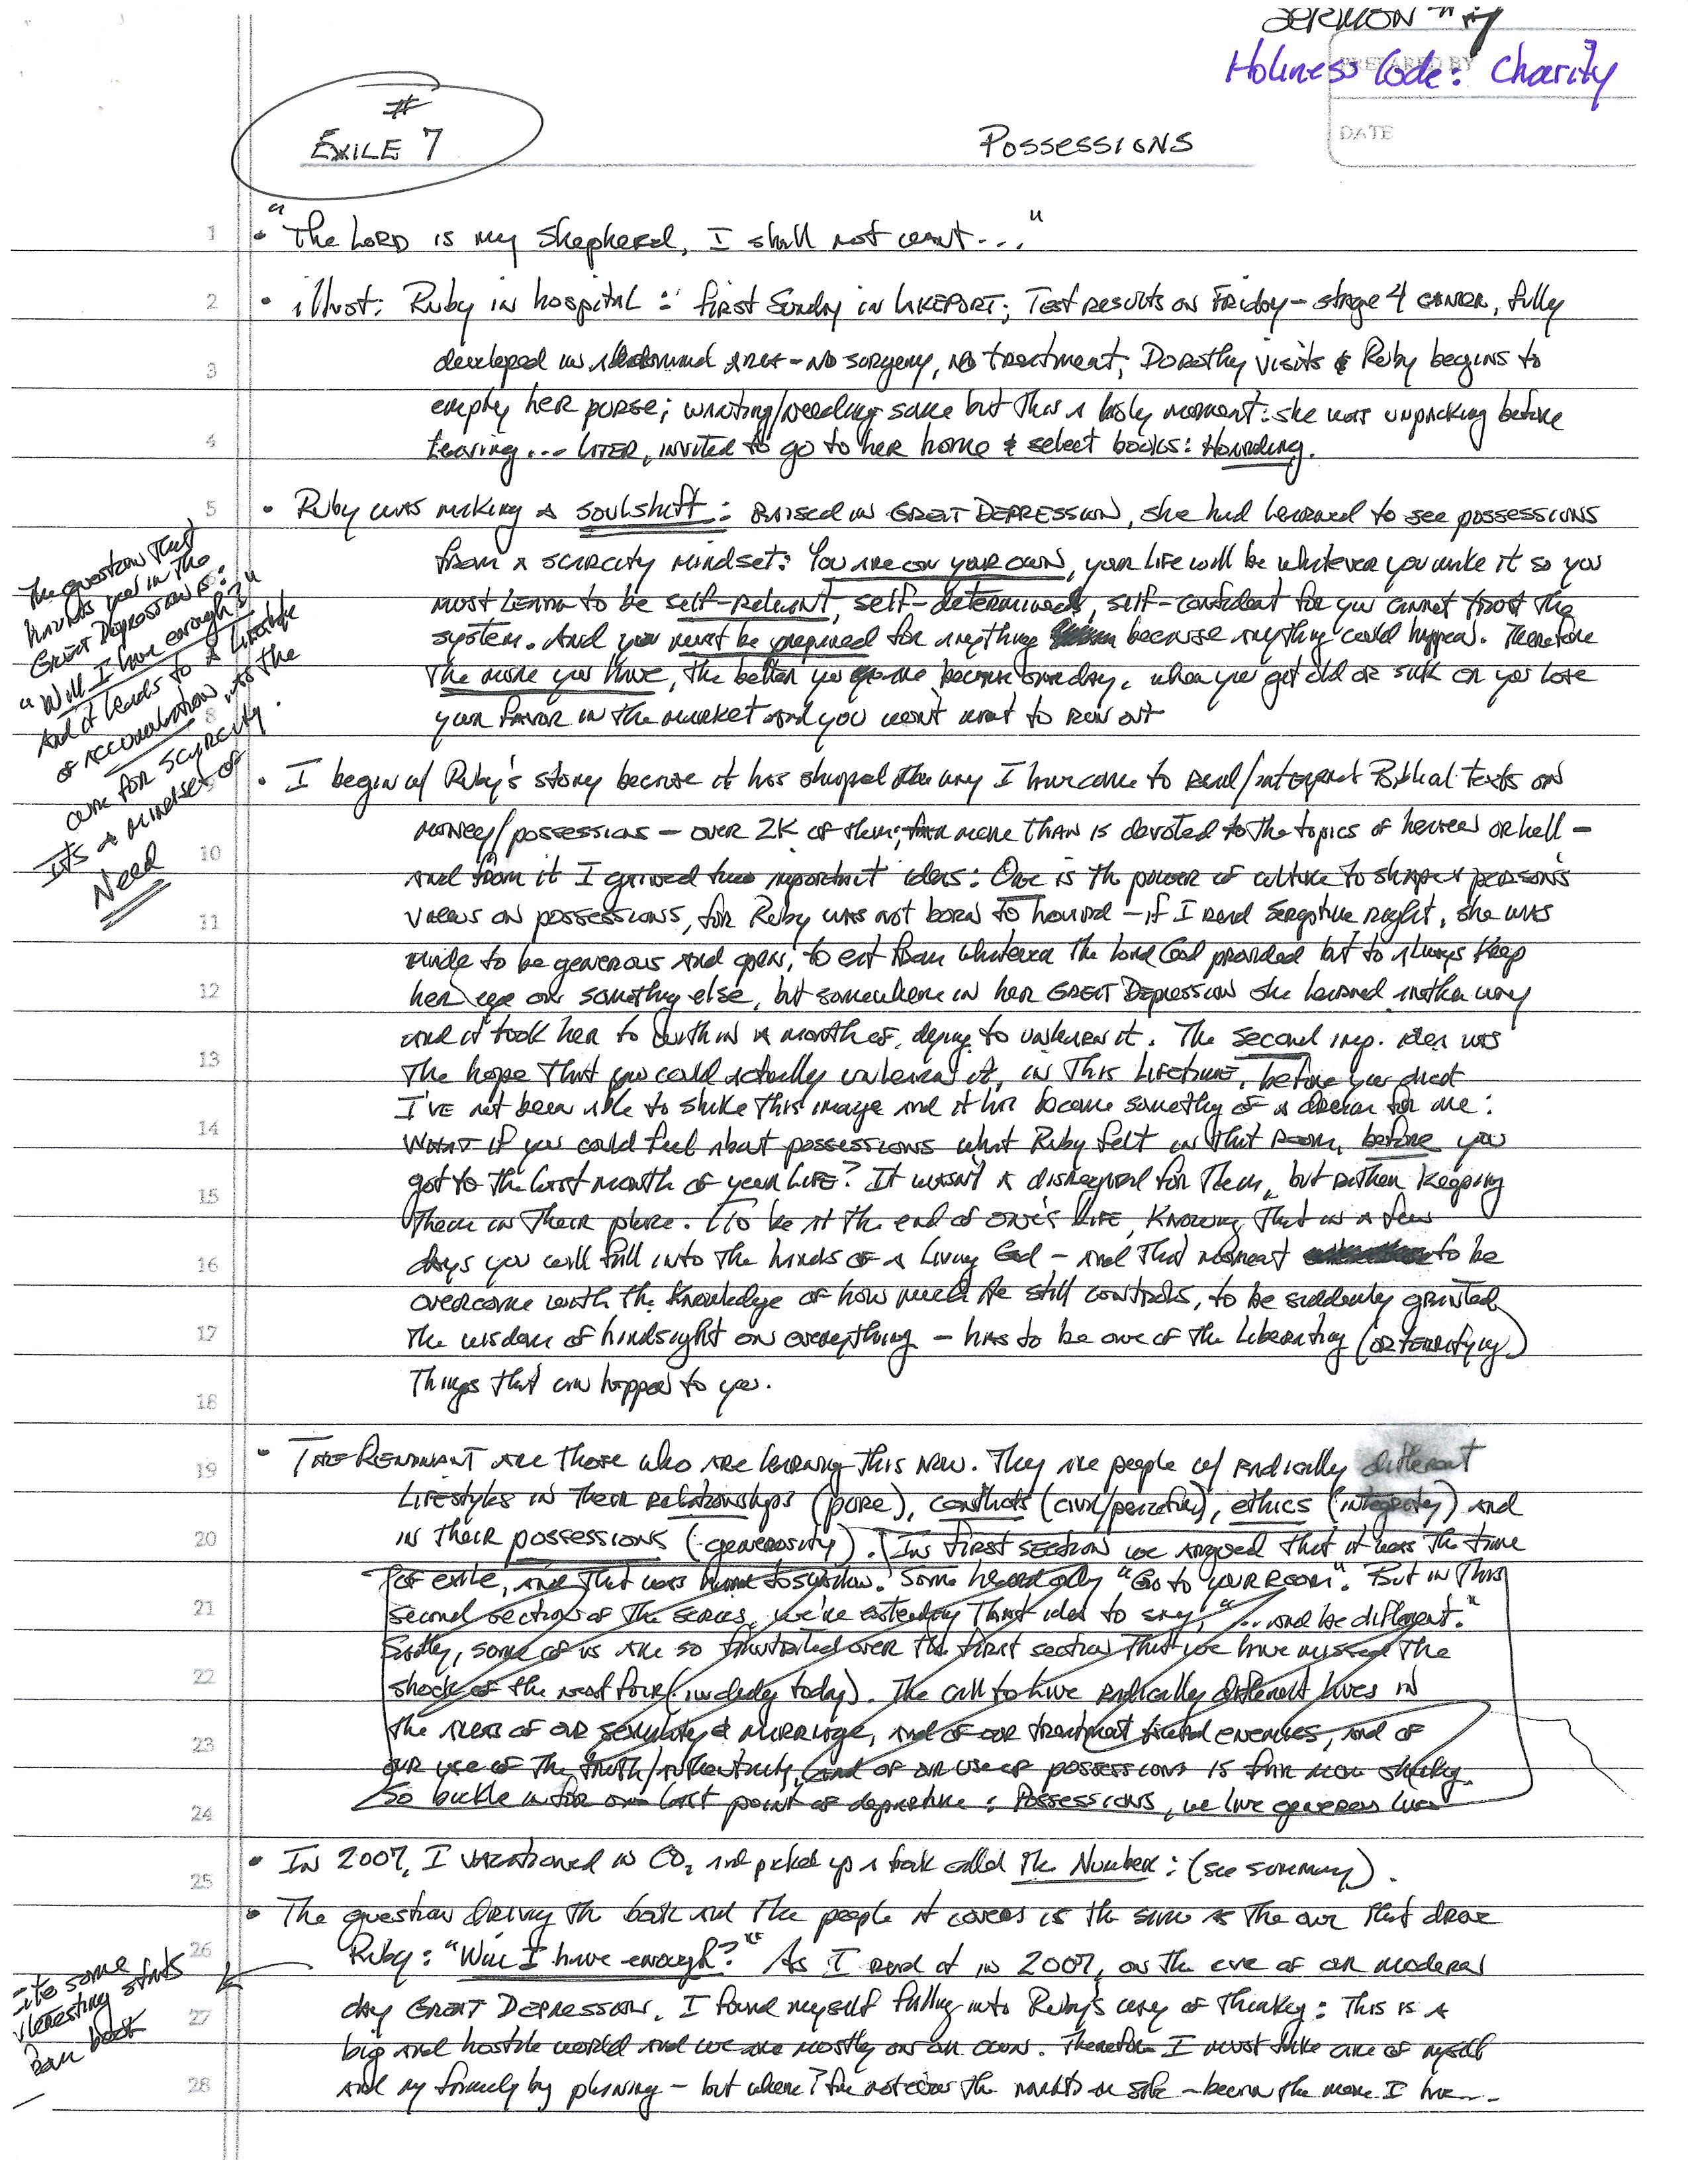 SERMON #7
Holiness Code: Charity
PREPARED BY
DATE
#
EXILE 7
POSSESSIONS
1 • "The LORD is my Shepherd, I shall not want..."
2 • illust: Ruby in hospital: first Sunday in LAKEPORT; Test results on Friday - stage 4 cancer, fully
3 developed in abdominal area - no surgery, no treatment; Dorothy visits & Ruby begins to
empty her purse; wanting/needing same but this a holy moment: she was unpacking before
4 leaving... LATER, invited to go to her home & select books: Hoarding.
5 • Ruby was making a soulshift: RAISED in GREAT DEPRESSION, she had learned to see possessions
from a scarcity mindset: You are on your own, your life will be whatever you make it so you
must learn to be self-reliant, self-determined, self-confident for you cannot trust the
system. And you must be prepared for anything because anything could happen. Therefore
the more you have, the better you are because one day, when you get old or sick or you lose
8 your favor in the market and you won't want to run out
The question that
haunts you in the
GREAT DEPRESSION is:
"Will I have enough?"
And it leads to a lifestyle
of accumulation as the
cure for scarcity.
It's a mindset of
Need
• I begin w/ Ruby's story because it has shaped the way I have come to read/interpret Biblical texts on
money/possessions - over 2K of them; far more than is devoted to the topics of heaven or hell -
10 and from it I gained two important ideas: One is the power of culture to shape a person's
11 values on possessions, for Ruby was not born to hoard - if I read Scripture right, she was
made to be generous and open, to eat from whatever the Lord God provided but to always keep
12 her eye on something else, but somewhere in her GREAT DEPRESSION she learned another way
and it took her to within a month of dying to unlearn it. The second imp. idea was
13 the hope that you could actually unlearn it, in this lifetime, before you died
I've not been able to shake this image and it has become something of a dream for me:
14 What if you could feel about possessions what Ruby felt in that room, before you
got to the last month of your life? It wasn't a disregard for them, but rather keeping
15 them in their place. (To be at the end of one's life, knowing that in a few
16 days you will fall into the hands of a Living God - and that moment to be
overcome with the knowledge of how much He still controls, to be suddenly granted
17 the wisdom of hindsight on everything - has to be one of the liberating (or terrifying)
18 things that can happen to you.
19 • THE REMNANT are those who are learning this now. They are people w/ radically different
lifestyles in their relationships (pure), conflicts (civil/peaceful), ethics (integrity) and
20 in their possessions (generosity). (In first section we argued that it was the time
for exile, and that was hard to swallow. Some heard only "Go to your room". But in this
21 second section of the series, we're extending that idea to say, "...and be different."
Sadly, some of us are so frustrated over the first section that we have missed the
22 shock of the next four (including today). The call to live radically different lives in
23 the areas of our sexuality & marriage, and of our treatment toward enemies, and of
our use of the truth/authenticity, and of our use of possessions is far more shocking.
24 So buckle in for one last point of departure: Possessions, we live generous lives
25 • In 2007, I vacationed in CO, and picked up a book called The Number: (see summary).
• The question driving the book and the people it covers is the same as the one that drove
26 Ruby: "Will I have enough?" As I read it in 2007, on the eve of our modern
27 day GREAT DEPRESSION, I found myself falling into Ruby's way of thinking: This is a
big and hostile world and we are mostly on our own. Therefore I must take care of myself
28 and my family by planning - but where? for not even the markets are safe - because the more I have...
cite some
interesting stats
from book